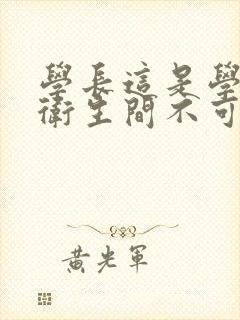 學長這是學
衛生間不可
黃光軍